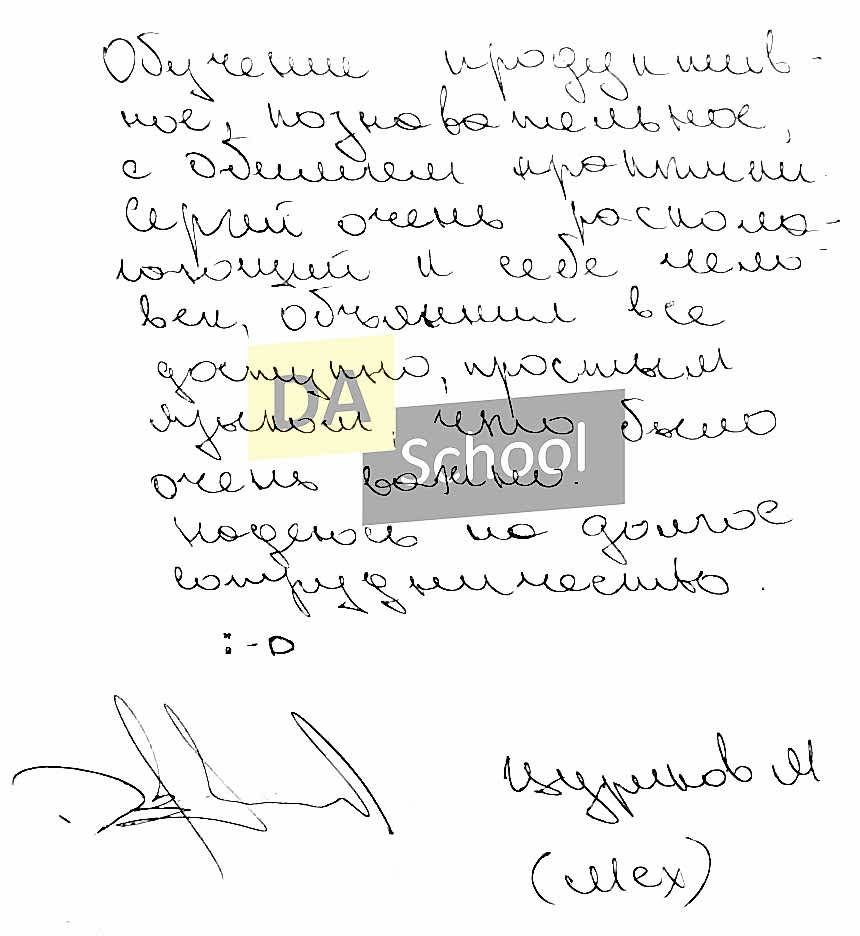 Обучение продуктив-
ное, познавательное,
с обилием практики.
Сергей очень распола-
гающий к себе чело-
век, объяснил все
доступно, простым
языком, что было
очень важно.
Надеюсь на долгое
сотрудничество.
:-D
DA
School
М
(Мех)